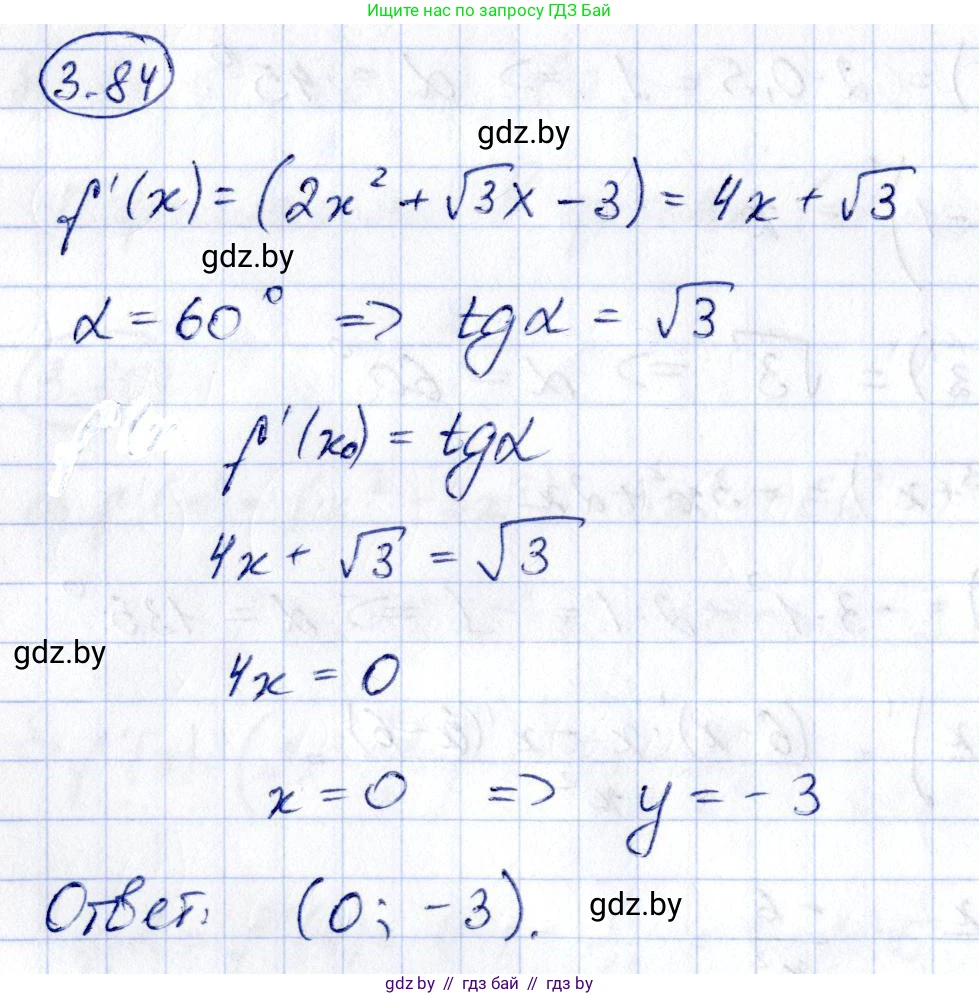 Ищите нас по запросу ГДЗ Бай
3.84
gdz.by
f'(x) = (2x² + √3x - 3) = 4x + √3
gdz.by
α = 60° => tgα = √3
f'(x₀) = tgα
4x + √3 = √3
gdz.by
4x = 0
x = 0 => y = - 3
Ответ: (0; -3).
gdz.by
gdz.by // гдз бай // gdz.by